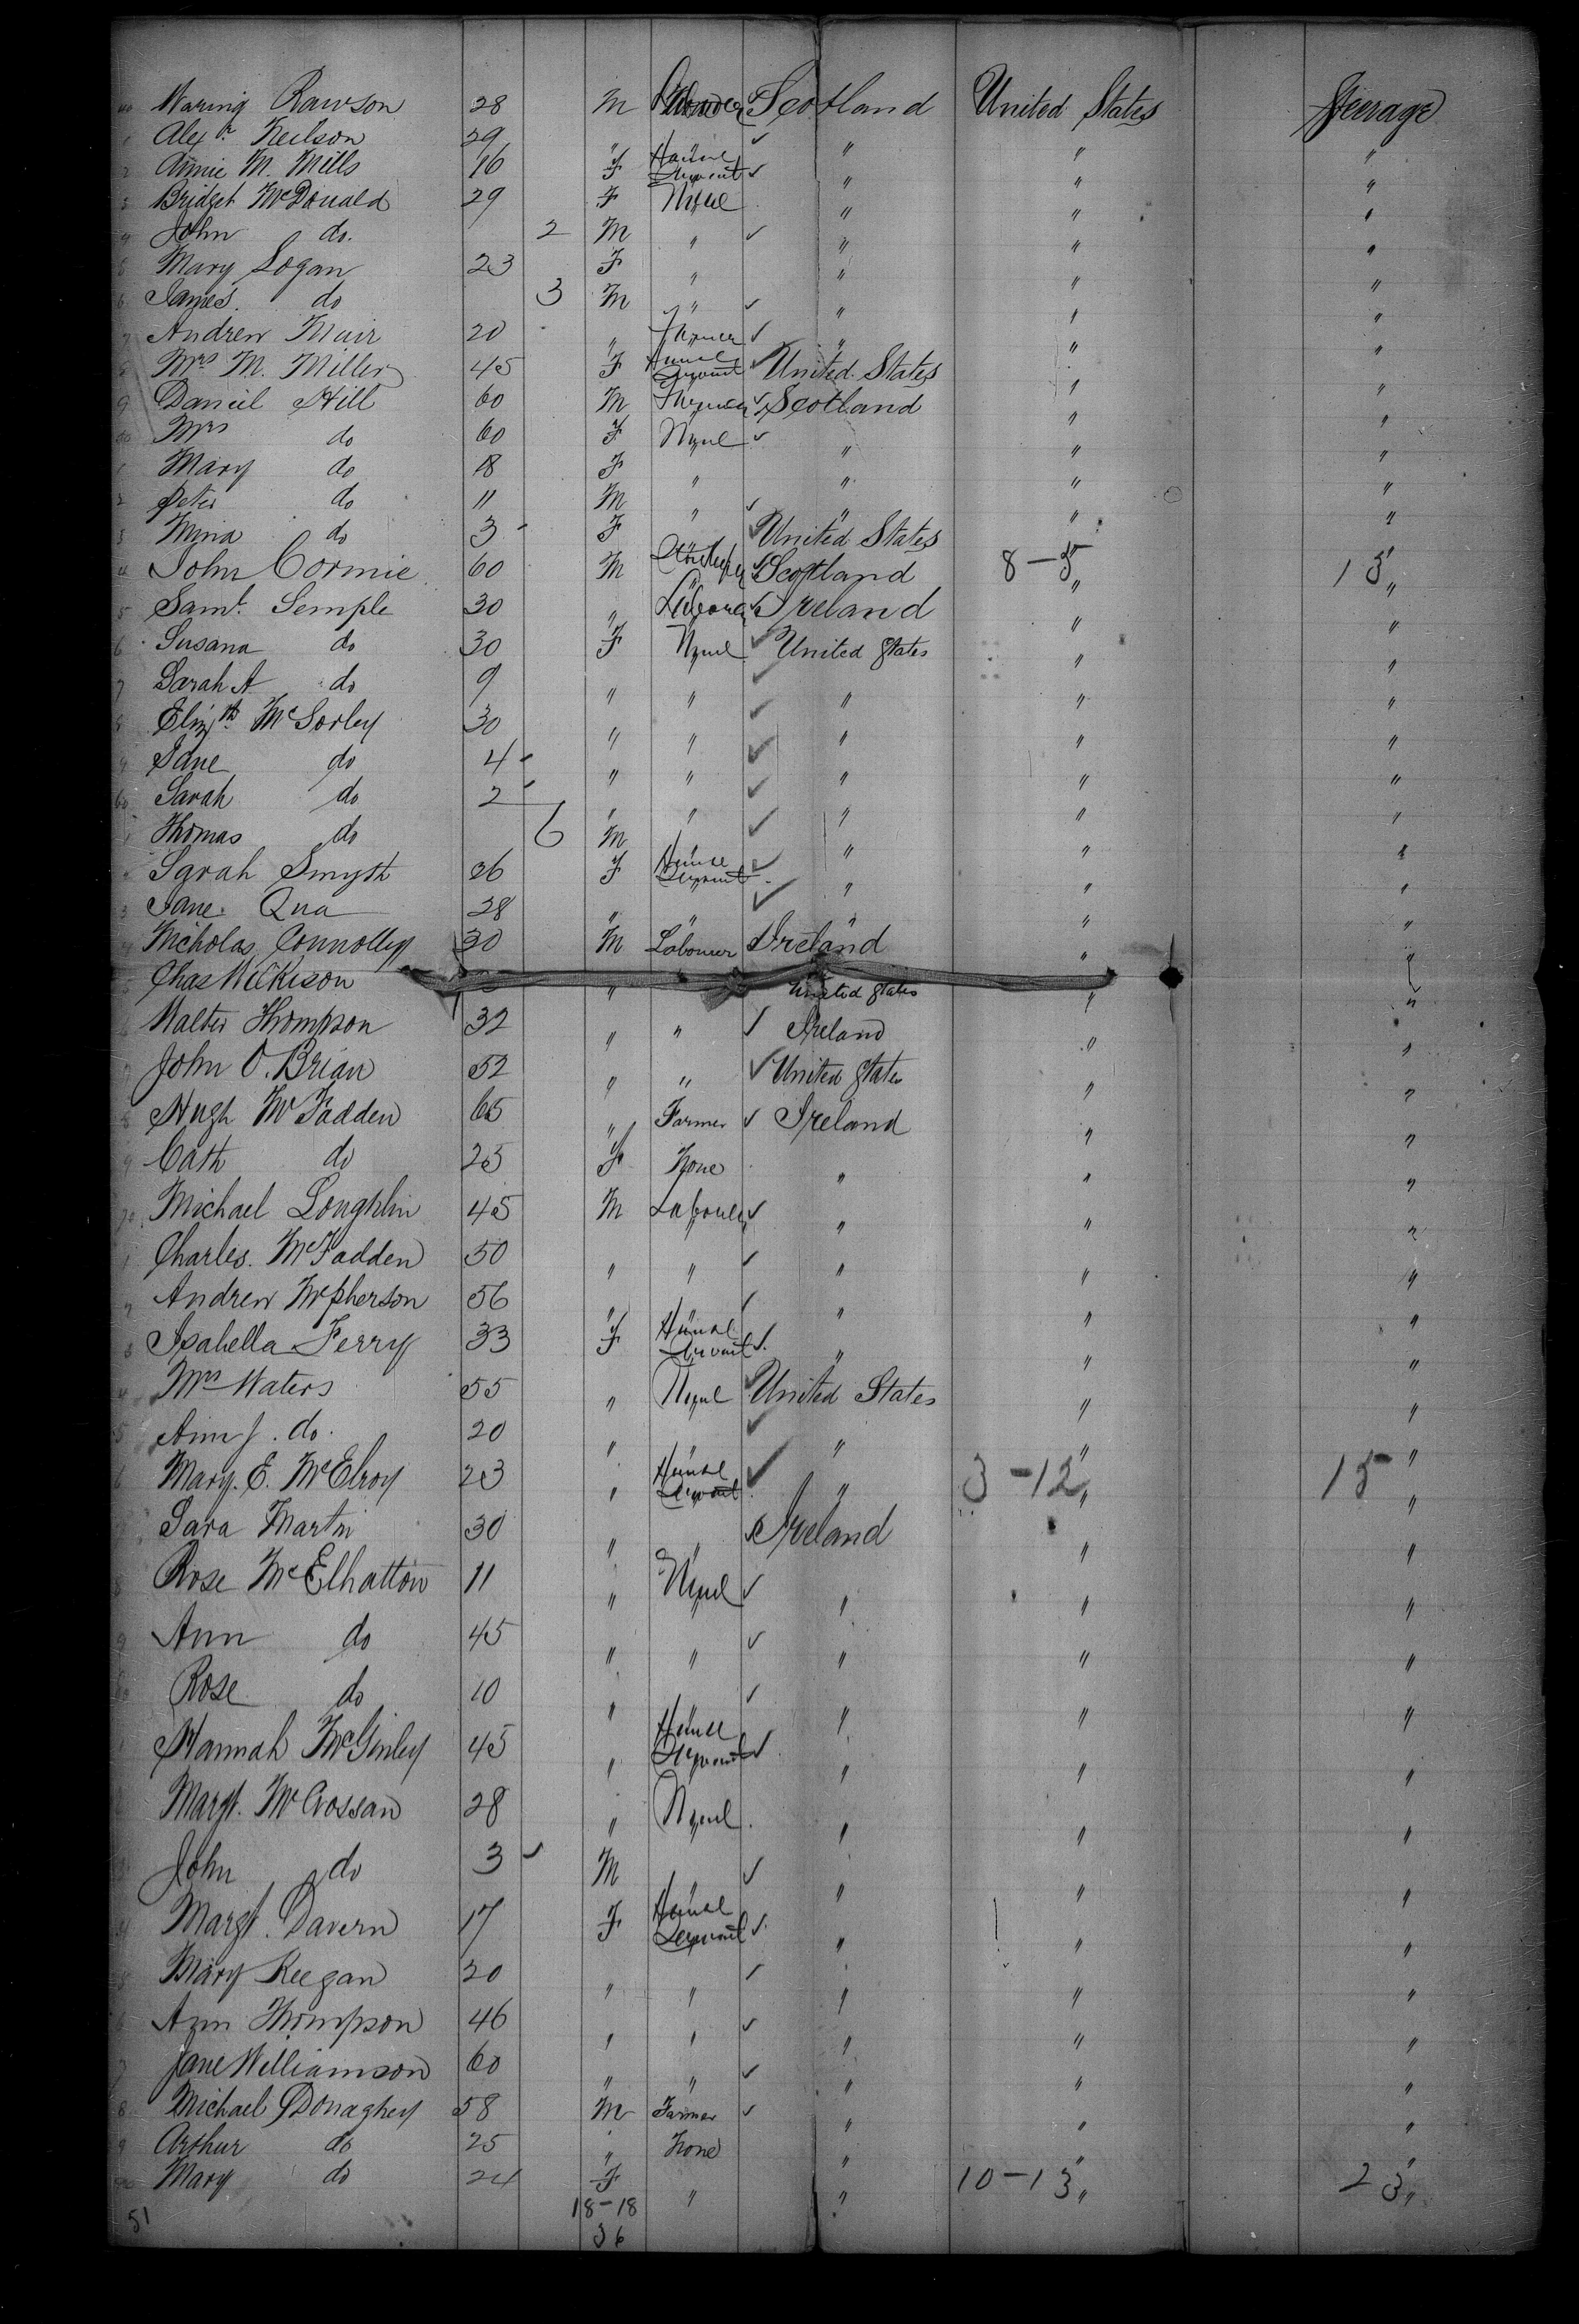 Waring Rawson 28 M Labourer Scotland United States Steerage
1 Alexr Neilson 29 " " " " "
2 Annie M. Mills 16 F House Servant ✓ " " "
3 Bridget McDonald 29 F None " " "
4 John do. 2 M " ✓ " " "
5 Mary Logan 23 F " " " "
6 James do 3 M " ✓ " " "
7 Andrew Muir 20 " ✓ " " "
8 Mrs M. Miller 45 F House Servant ✓ United States " "
9 Daniel Hill 60 M ✓ Scotland " "
50 Mrs do 60 F None ✓ " " "
1 Mary do 18 F " " " "
2 Peter do 11 M " ✓ " " "
3 Mina do 3 F ✓ United States " "
4 John Cormie 60 M ✓ Scotland 8-5 " 13 "
5 Saml. Semple 30 " Laborer ✓ Ireland " "
6 Susana do 30 F None ✓ United States " "
7 Sarah A do 9 " " ✓ " " "
8 Elizth McSorley 30 " " ✓ " " "
9 Jane do 4 " " ✓ " " "
60 Sarah do 2 " " ✓ " " "
1 Thomas do 6 M " ✓ " " "
Sarah Smyth 26 F House Servant ✓ " " "
3 Jane Qua 28 " " ✓ " " "
4 Nicholas Connolly 30 M Labourer ✓ Ireland " "
5 Chas Wilkison " United States " "
Walter Thompson 32 " " ✓ Ireland " "
7 John O. Brian 52 " " ✓ United States " "
8 Hugh McFadden 65 " Farmer ✓ Ireland " "
9 Cath do 25 F None " " "
70 Michael Loughlin 45 M Labourer ✓ " " "
1 Charles. McFadden 50 " " ✓ " " "
2 Andrew Mcpherson 56 " " ✓ " " "
3 Isabella Ferry 33 F House Servant ✓ " " "
4 Mrs Waters 55 " None ✓ United States " "
5 Ann J. do. 20 " " ✓ " " "
6 Mary. E. McElroy 23 " House Servant ✓ " 3-12 " 15 "
Sara Martin 30 " " ✓ Ireland " "
8 Rose McElhatton 11 " None ✓ " " "
9 Ann do 45 " " ✓ " " "
Rose do 10 " " ✓ " " "
1 Hannah McGinley 45 " House Servant ✓ " " "
Margt. McCrossan 28 " None " " "
John do 3 ✓ M " ✓ " " "
4 Margt. Davern 17 F House Servant ✓ " " "
5 Mary Keegan 20 " " ✓ " " "
6 Ann Thompson 46 " " ✓ " " "
7 Jane Williamson 60 " " ✓ " " "
8 Michael Donaghey 58 M Farmer ✓ " " "
9 Arthur do 25 " None " " "
Mary do 24 F " " 10-13 " 23 "
51 18-18
36